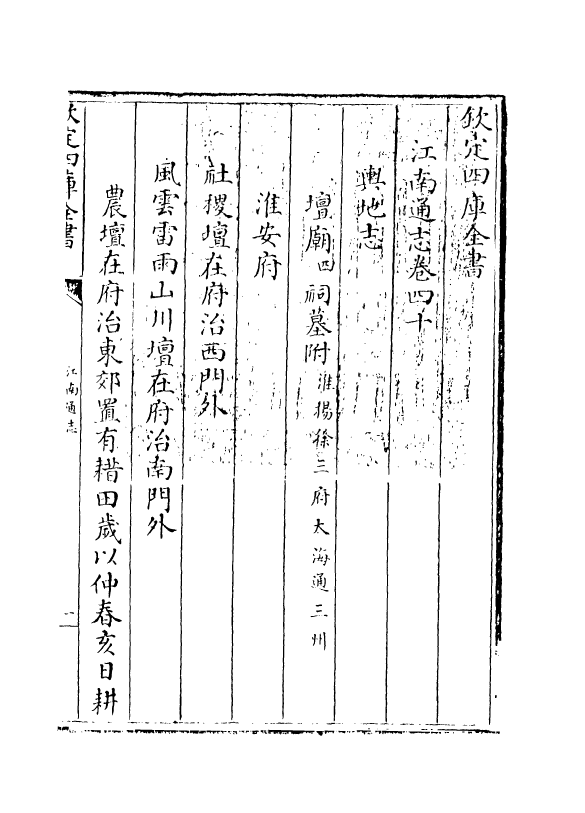 欽定四庫全書
江南通志卷四十
輿地志
壇廟四祠墓附淮揚徐三府太海通三州
淮安府
社稷壇在府治西門外
風雲雷雨山川壇在府治南門外
農壇在府治東郊置有耤田歲以仲春亥日耕
欽定四庫全書
江南通志
一